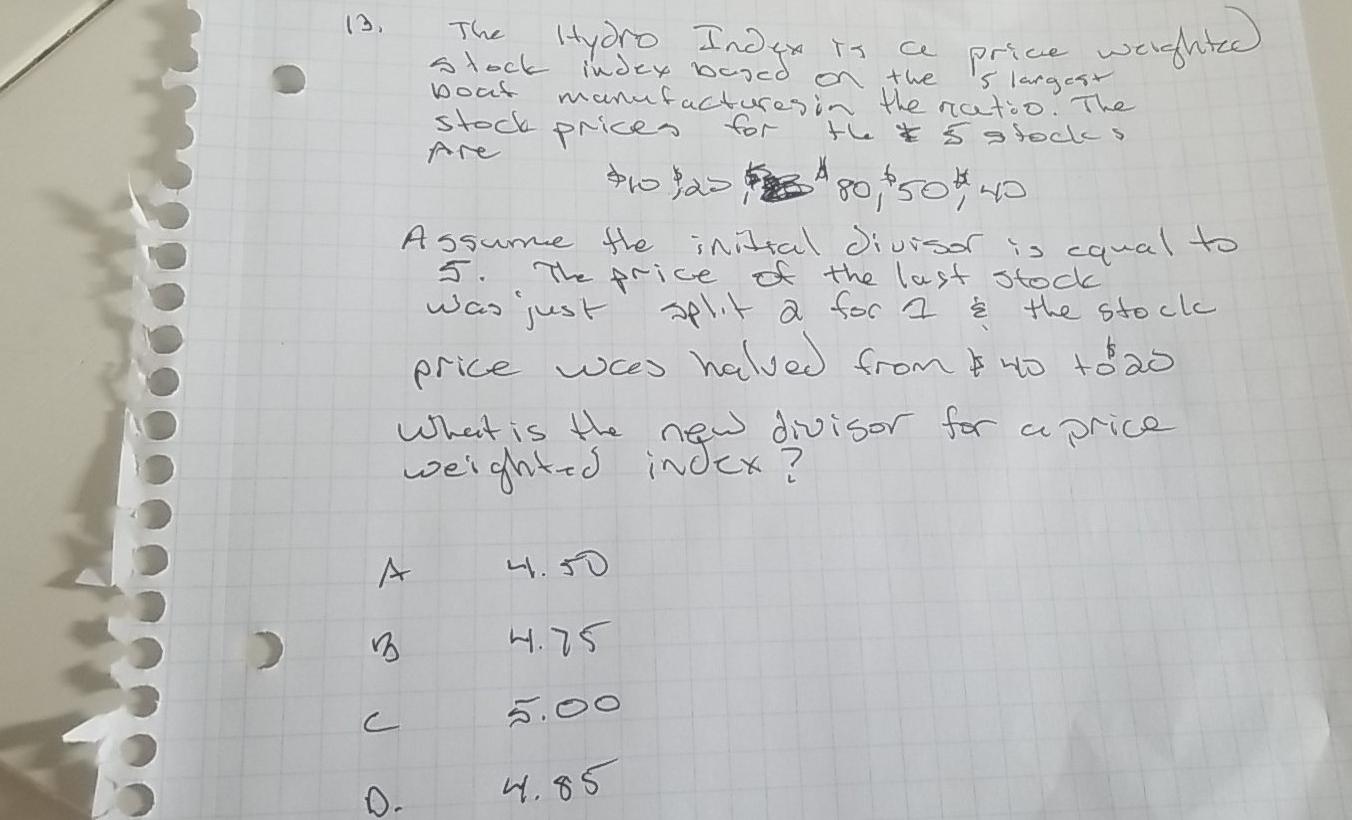 13. The Hydro Index is a price weighted
stock index based on the 5 largest
boat manufactures in the natio. The
stock prices for the 5 stocks
Are
$10, $20, $80, $50, $40
Assume the initial divisor is equal to
5. The price of the last stock
was just split 2 for 1 & the stock
price was halved from $40 to $20
What is the new divisor for a price
weighted index?
A 4.50
B 4.75
C 5.00
D. 4.85